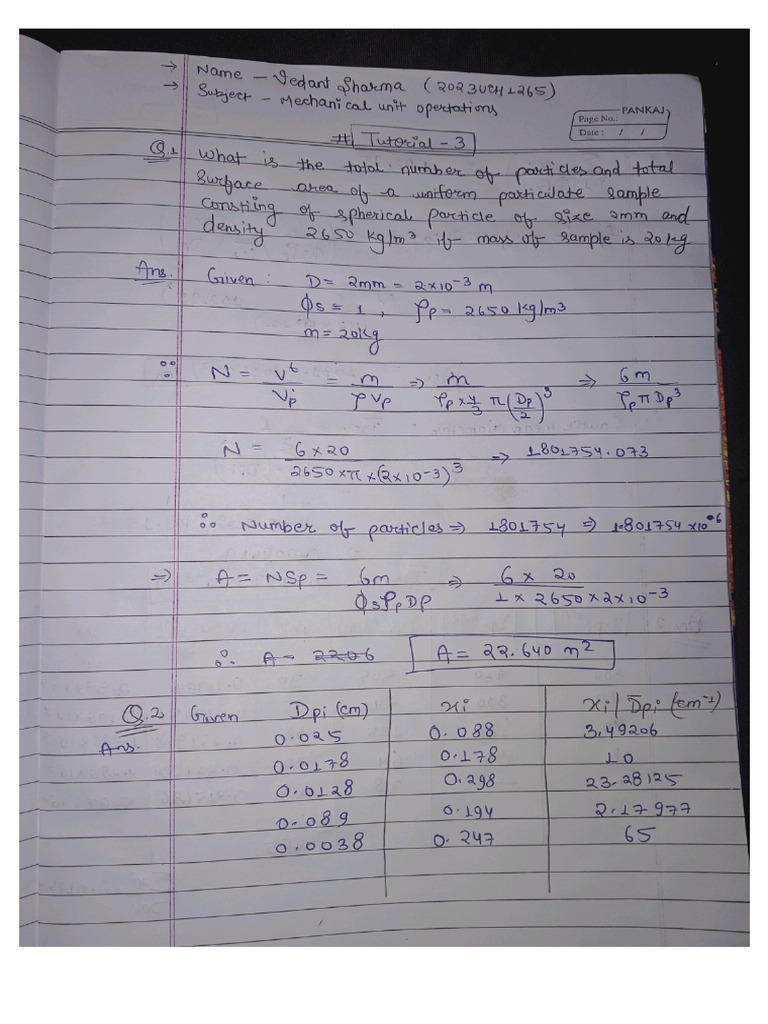 → Name - Vedant Sharma (2023UCH1265)
→ Subject - Mechanical unit opertations
PANKAJ
Page No.:
Date : / /
# Tutorial - 3
Q.1 What is the total number of particles and total
surface area of a uniform particulate sample
constiing of spherical particle of size 2mm and
density 2650 kg/m³ if mass of sample is 20 kg
Ans. Given : D = 2mm = 2×10⁻³ m
ϕs = 1 , ρp = 2650 kg/m³
m = 20kg
∴ N = Vt/Vp = m/ρVp ⇒ m/(ρp × 4/3 π(Dp/2)³) ⇒ 6m/(ρpπDp³)
N = (6×20)/(2650×π×(2×10⁻³)³) ⇒ 1801754.073
∴ Number of particles ⇒ 1801754 ⇒ 1.801754×10⁰⁶
⇒ A = NSp = 6m/(ϕsρpDp) ⇒ (6 × 20)/(1 × 2650×2×10⁻³)
∴ A = 2206 A = 22.640 m²
Q.2 Given Dpi (cm) xi xi/D̄pi (cm⁻¹)
Ans. 0.025 0.088 3.49206
0.0178 0.178 10
0.0128 0.298 23.28125
0.089 0.194 2.17977
0.0038 0.247 65